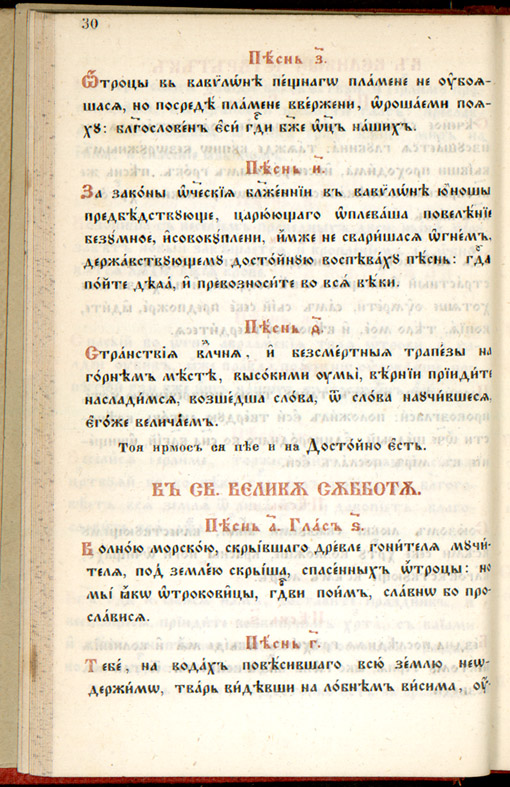 30
Пѣ́снь з҃.
Ѻ҆́троцы въ вавѷлѡ́нѣ пе́щнагѡ пла́мене не ᲂу҆боѧ́-
шасѧ, но посредѣ̀ пла́мене вве́ржени, ѡ҆роша́еми поѧ́-
хꙋ: бл҃гослове́нъ є҆сѝ гдⷭ҇и бж҃е ѻ҆ц҃ъ на́шихъ.
Пѣ́снь и҃.
За зако́ны ѻ҆те́ческїѧ бл҃же́ннїи въ вавѷлѡ́нѣ ю҆́ношы
предбѣ́дствꙋюще, царю́ющаго ѡ҆плева́ша повелѣ́нїе
безꙋ́мное, и҆совокꙋ́плени, и҆́мже не свари́шасѧ ѻ҆гне́мъ,
держа́вствꙋющемꙋ досто́йнꙋю воспѣва́хꙋ пѣ́снь: гдⷭ҇а
по́йте дѣла̀, и҆ превозноси́те во всѧ̑ вѣ́ки.
Пѣ́снь ѳ҃.
Стра́нствїѧ влⷣчнѧ, и҆ безсме́ртныѧ трапе́зы на
го́рнѣмъ мѣ́стѣ, высо́кими ᲂу҆мы̀, вѣ́рнїи прїиди́те
наслади́мсѧ, возше́дша сло́ва, ѿ сло́ва наꙋчи́вшесѧ,
є҆го́же велича́емъ.
Тоѧ ирмосъ сѧ пѣе и на Досто́йно є҆́сть.
ВЪ СВ. ВЕЛИКѪ СѪББОТѪ.
Пѣ́снь а҃. Гла́съ ѕ҃.
Волно́ю морско́ю, скры́вшаго дре́вле гони́телѧ мꙋчи́-
телѧ, под̾ земле́ю скры́ша, спасе́нныхъ ѻ҆́троцы: но
мы̀ ꙗ҆́кѡ ѻ҆трокови̑цы, гдⷭ҇ви пои́мъ, сла́внѡ бо про-
сла́висѧ.
Пѣ́снь г҃.
Тебѐ, на вода́хъ повѣ́сившаго всю̀ зе́млю неѡ-
держи́мѡ, тва́рь ви́дѣвши на ло́бнѣмъ ви́сима, ᲂу҆́-